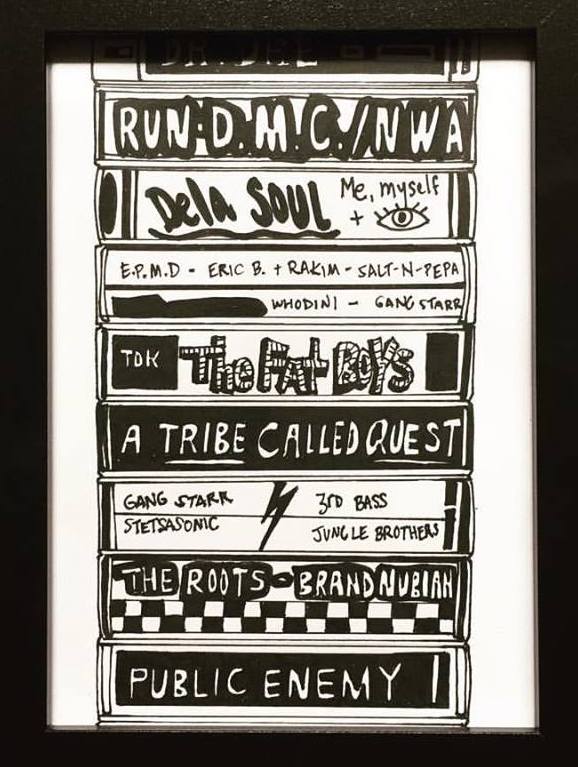 DR. DRE
RUN-D.M.C./NWA
De la SOUL Me, myself
+
E.P.M.D - ERIC B. + RAKIM - SALT-N-PEPA
WHODINI - GANG STARR
TDK The FAT BOYS
A TRIBE CALLED QUEST
GANG STARR 3rD BASS
STETSASONIC JUNGLE BROTHERS
THE ROOTS - BRAND NUBIAN
PUBLIC ENEMY